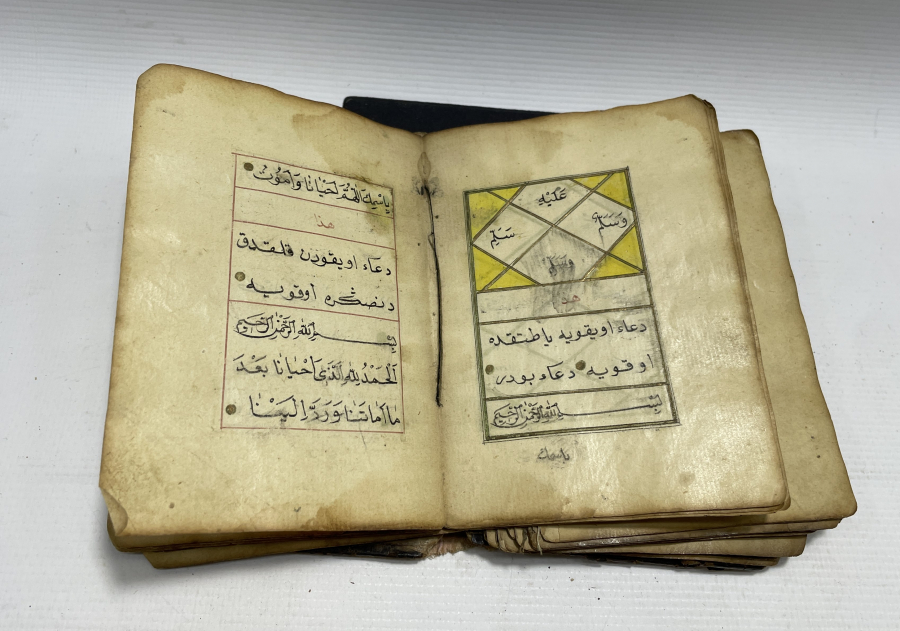 عَلَيْهِ
وَسَلَّمْ
سَلِّمْ
وسلم
هذا
دعاء اويقويه ياطتقده
اوقويه دعاء بودر
بِسْمِ اللهِ الرَّحْمٰنِ الرَّحِيمِ
باسمك
بِاسْمِكَ اللّٰهُمَّ اَحْيَانَا وَاَمُوتُ
هذا
دعاء اويقودن قلقدق
دنصكره اوقويه
بِسْمِ اللهِ الرَّحْمٰنِ الرَّحِيمِ
اَلْحَمْدُ لِلّٰهِ الَّذِى اَحْيَانَا بَعْدَ
مَا اَمَاتَنَا وَرَدَّ اِلَيْنَا